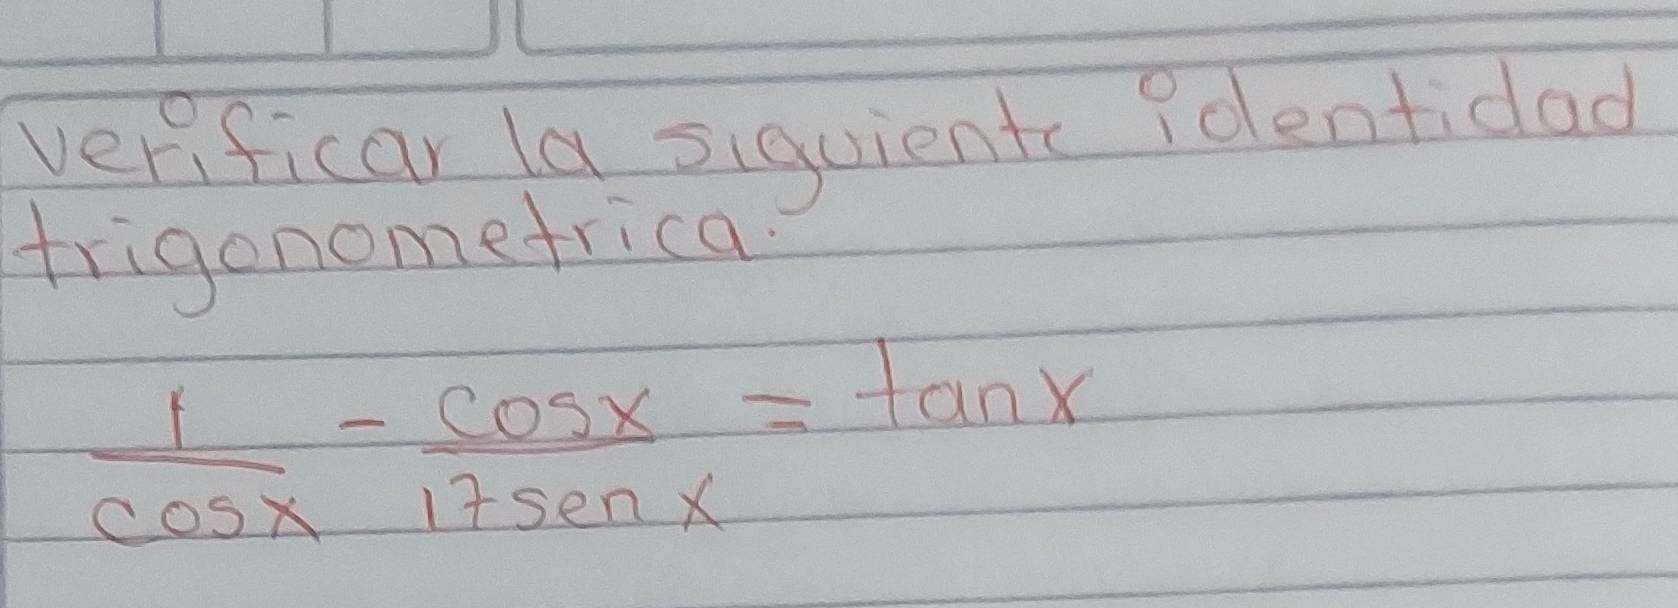 verificar la siguiente identidad
trigonometrica.
1/cosx - cosx/17senx = tanx